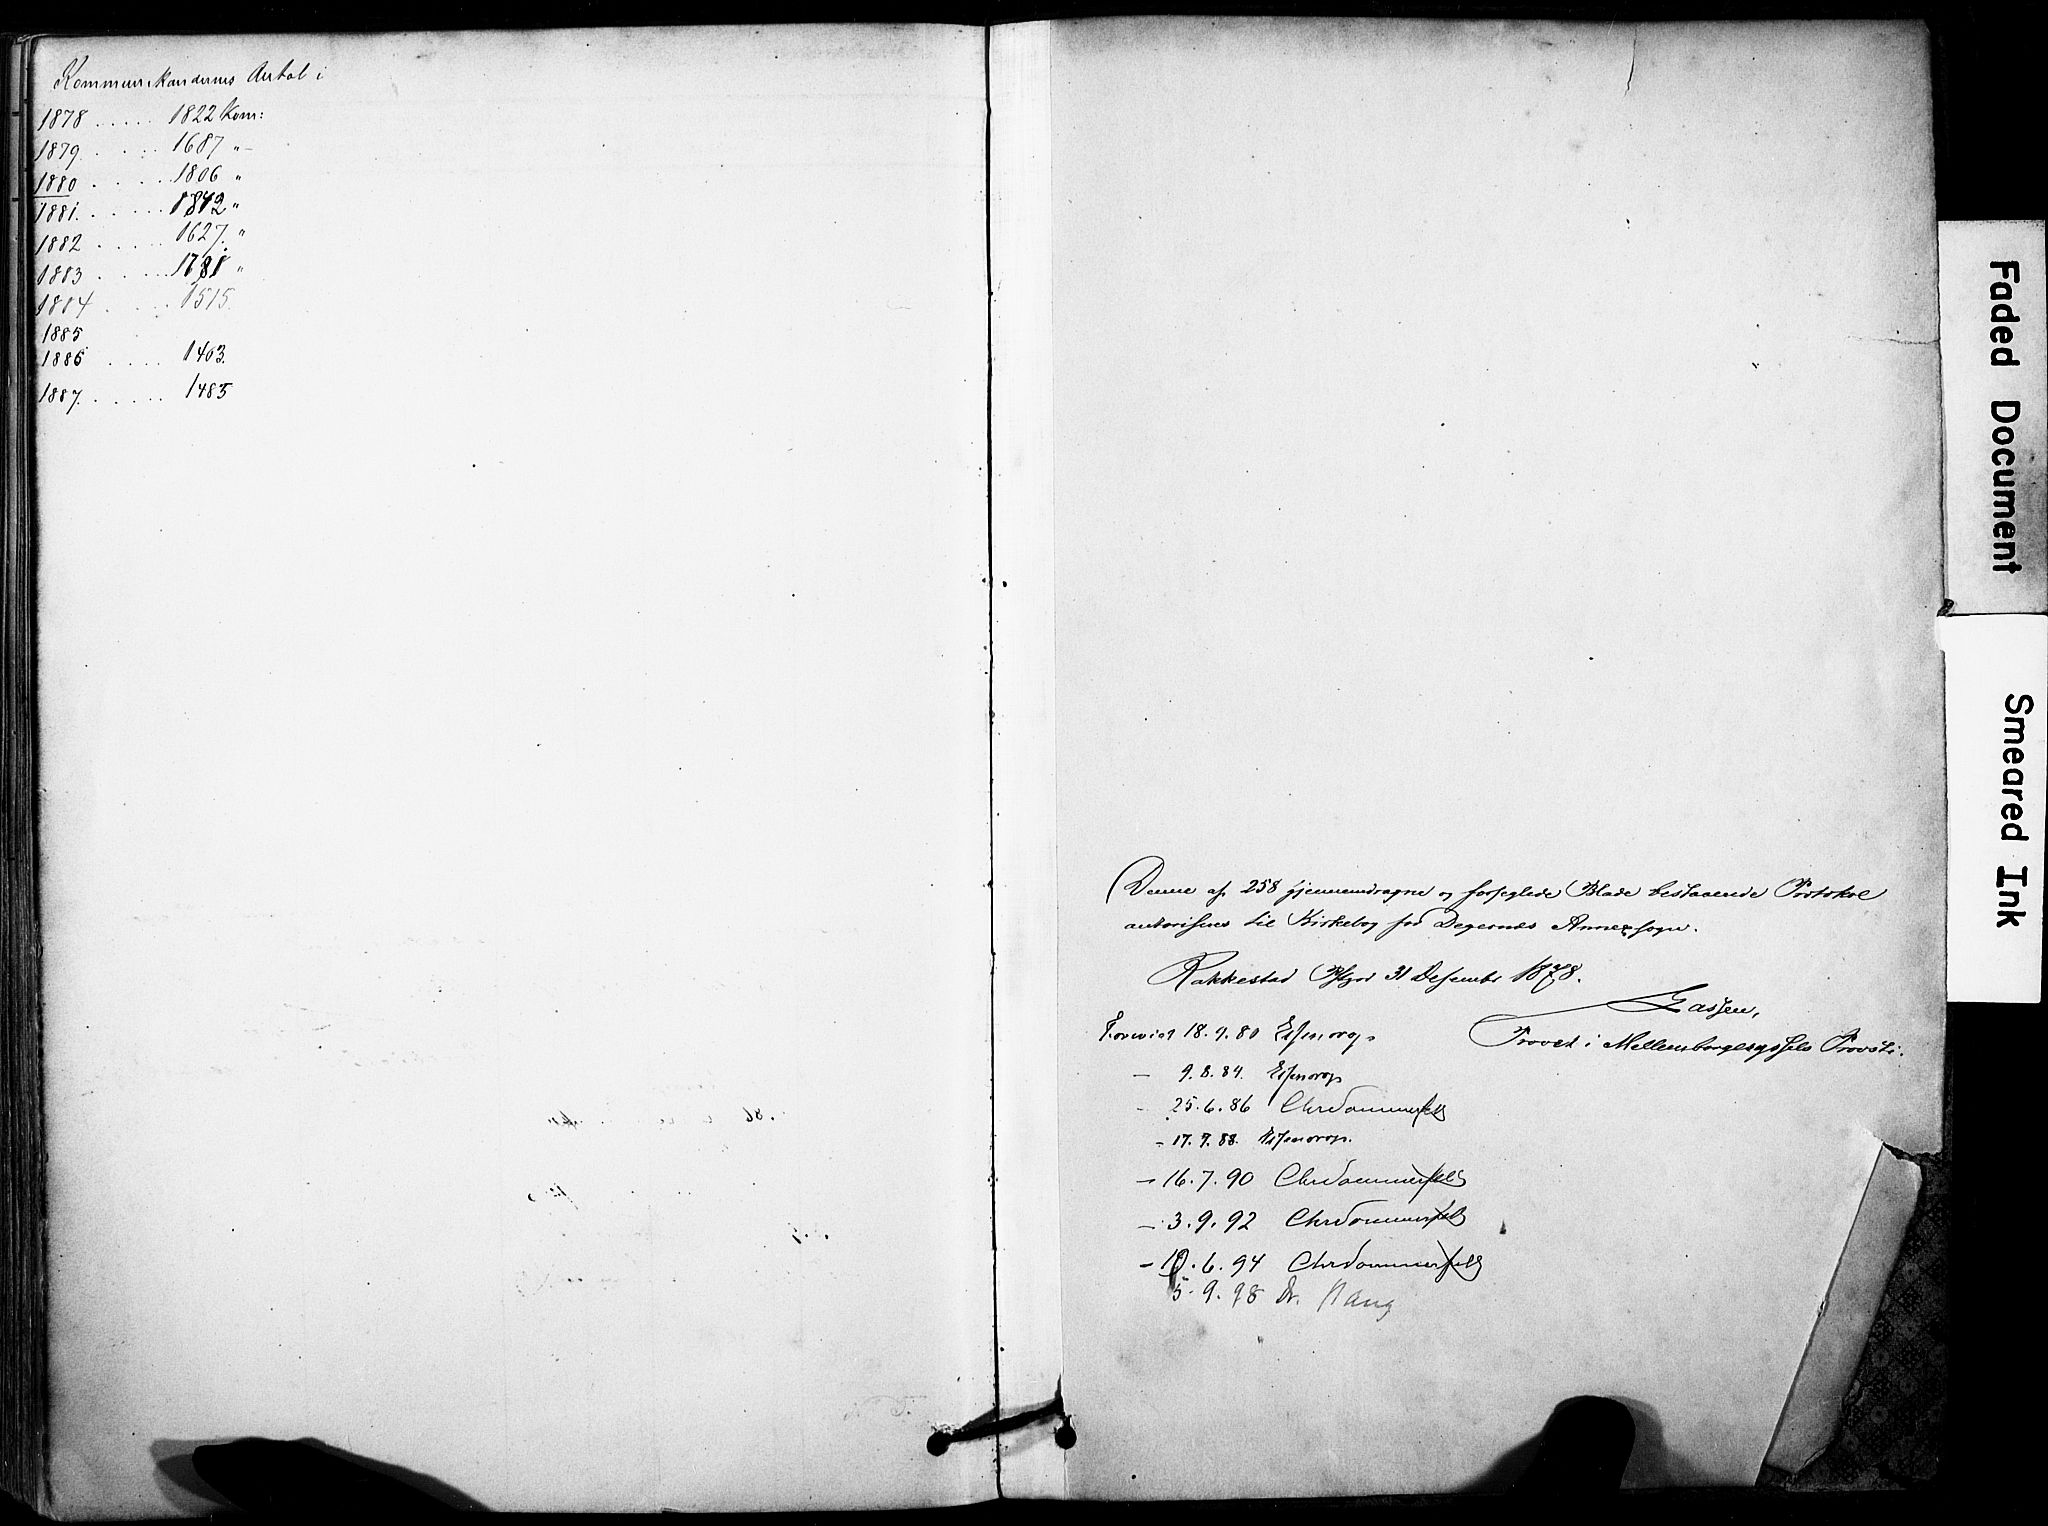 Kommunikandernes Antal i
1878 . . . . . 1822 Kom:
1879 . . . . 1687 "
1880 . . . . . 1806 "
1881. . . . . . 1842 "
1882 . . . . . 1627. "
1883 . . . . . "
1884 . . . . 1515.
1885
1886 . . . . 1403.
1887. . . . . . 1485
Denne af 258 gjennemdragne og forseglede Blade bestaaende Protokol
autoriseres til Kirkebog for Degernes Annexsogn.
Rakkestad Pgrd 31 Desember 1878.
Lassen,
Provst i Mellemborgesyssels Provsti.
Forevist 18.9.80 Essendrop
— 9.8.84. Essendrop
- 25.6.86 Chr Sommerfelt
- 17.9.88. Essendrop.
- 16.7.90 Chr Sommerfelt
- 3.9.92 Chr Sommerfelt
- 10.6.94 Chr Sommerfelt
5.9.98 Bang
Faded Document
Smeared Ink